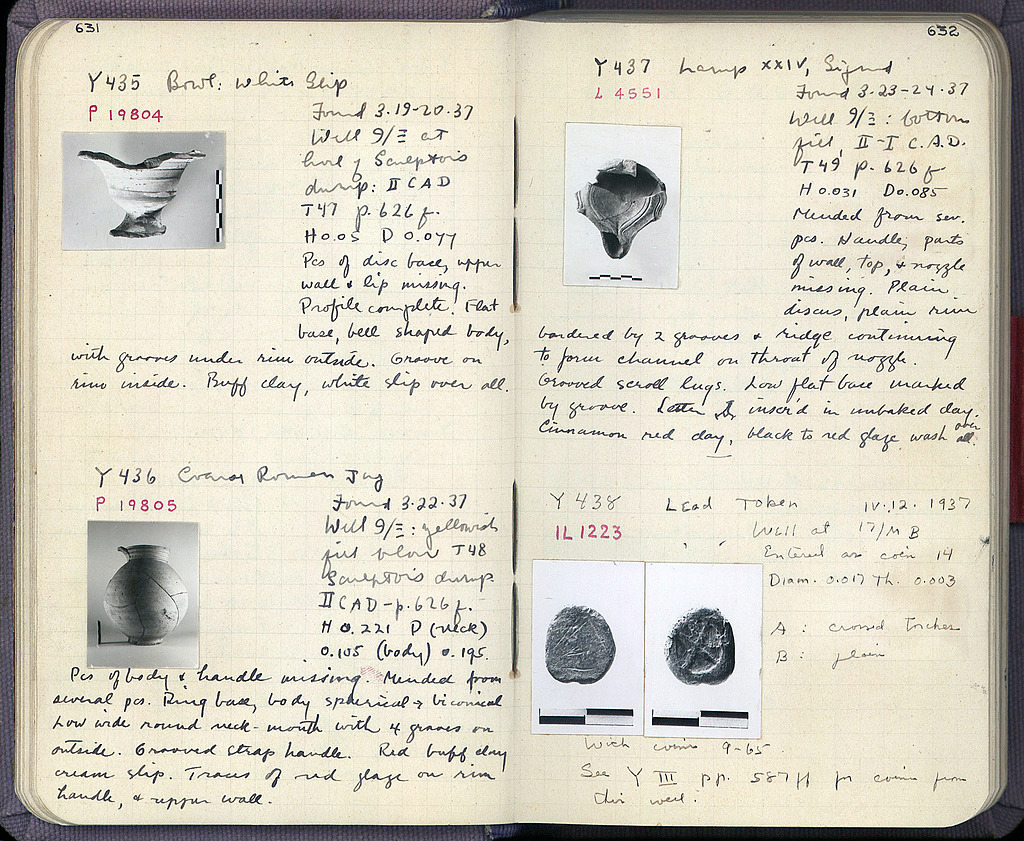 631
Y 435 Bowl: White Slip
P 19804
Found 3-19-20-37
Well 9/Ξ at
level of Sculptor's
dump: II C AD
T47 p. 626 f.
H 0.05 D 0.077
Pcs of disc base, upper
wall & lip missing.
Profile complete. Flat
base, bell shaped body,
with grooves under rim outside. Groove on
rim inside. Buff clay, white slip over all.
Y 436 Coarse Roman Jug
P 19805
Found 3-22-37
Well 9/Ξ: yellowish
fill below T48
Sculptor's dump
II C AD - p. 626 f.
H 0.221 D (neck)
0.105 (body) 0.195
Pcs of body & handle missing. Mended from
several pcs. Ring base, body spherical → biconical
Low wide round neck-mouth with 4 grooves on
outside. Grooved strap handle. Red buff clay
cream slip. Traces of red glaze on rim
handle, & upper wall.
632
Y 437 Lamp XXIV, Signed
L 4551
Found 3-23-24-37
Well 9/Ξ: bottom
fill, II-I C. A.D.
T49 p. 626 f
H 0.031 D 0.085
Mended from sev.
pcs. Handle, parts
of wall, top, & nozzle
missing. Plain
discus, plain rim
bordered by 2 grooves & ridge continuing
to form channel on throat of nozzle.
Grooved scroll lugs. Low flat base marked
by groove. Letter inscr'd in unbaked clay.
Cinnamon red clay, black to red glaze wash over all.
Y 438 Lead Token IV.12.1937
IL 1223
Well at 17/M B
Entered as coin 14
Diam. 0.017 Th. 0.003
A: crossed torches
B: plain
With coins 9-65.
See Y III pp. 587 ff for coins from
this well.